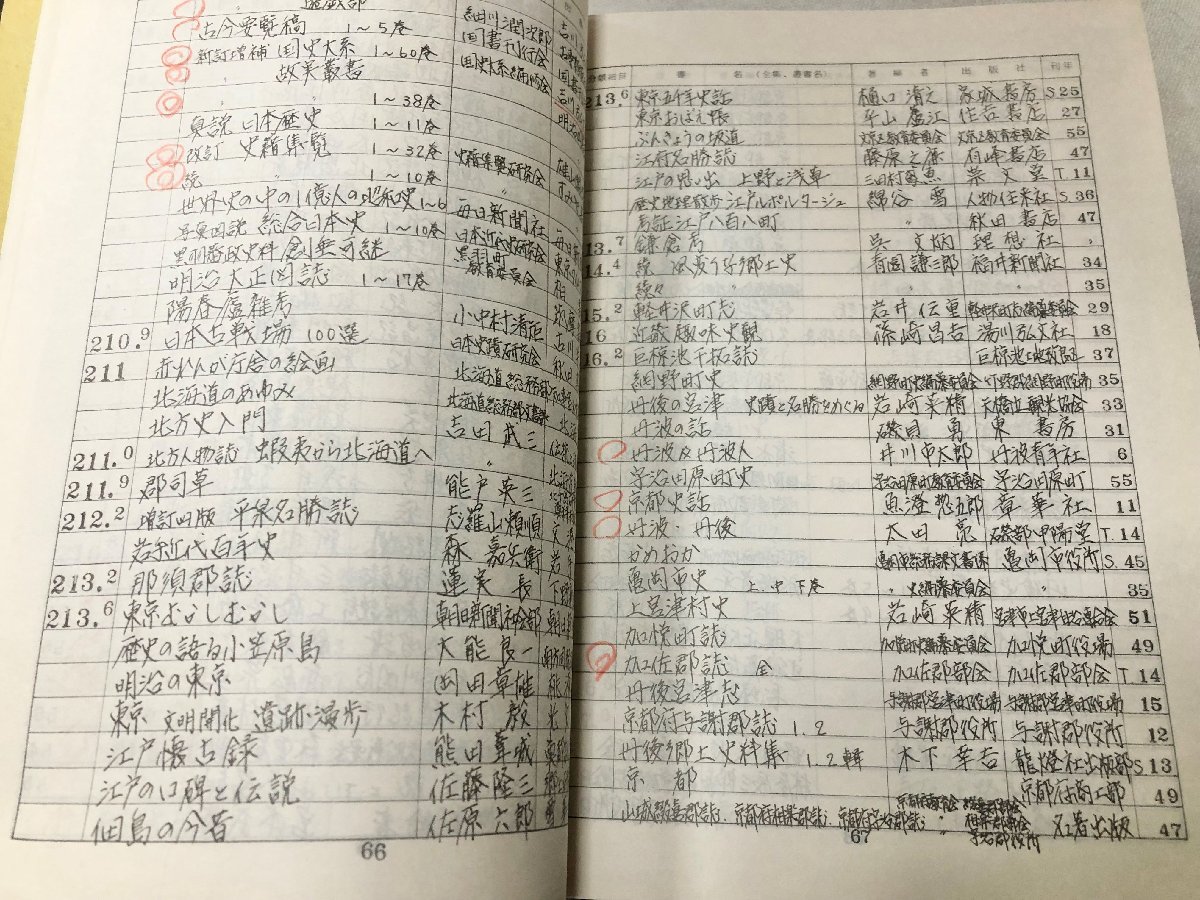 古今要覧稿 1～5巻 細川潤次郎
新訂増補 国史大系 1～60巻 国書刊行会
〃 故実叢書 国史大系編修会
〃 〃 1～38巻
異説日本歴史 1～11巻
改訂 史籍集覧 1～32巻 史籍集覧研究会
続 〃 1～10巻 〃
世界史の中の1億人の昭和史 1～6 毎日新聞社
写真図説 総合日本史 1～10巻 日本近代史研究会
黒羽藩政史料 創垂可継 黒羽町教育委員会
明治大正図誌 1～17巻
陽春廬雑考 小中村清矩
210.9 日本古戦場100選 日本史蹟研究会
211 赤れんが庁舎の絵画 北海道総務部
北海道のあゆみ 北海道総務部文書課
北方史入門 吉田武三
211.0 北方人物誌 蝦夷から北海道へ 〃
211.9 郡司草 能戸英三
212.2 増訂四版 平泉名勝誌 志羅山頼順
岩泉近代百年史 森嘉兵衛
213.2 那須郡誌 蓮実長
213.6 東京むかしむかし 朝日新聞社会部
歴史の語る小笠原島 大熊良一
明治の東京 岡田章雄
東京 文明開化 遺跡漫歩 木村毅
江戸懐古録 熊田葦城
江戸の口碑と伝説 佐藤隆三
佃島の今昔 佐原六郎
66
書名（全集、叢書名） 著編者 出版社 刊年
213.6 東京五千年史話 樋口清之 S.25
東京おぼえ帳 平山蘆江 住吉書店 27
ぶんきょうの坂道 文京区教育委員会 文京区教育委員会 55
江府名勝誌 藤原之廉 有峰書店 47
江戸の思い出 上野と浅草 三田村鳶魚 崇文堂 T.11
歴史地理散歩 江戸ルポルタージュ 綿谷雪 人物往来社 S.36
考証江戸八百八町 〃 秋田書店 47
13.7 鎌倉考 呉文炳 理想社 〃
14.4 続 郷土史 青園謙三郎 福井新聞社 34
続々 〃 35
15.2 軽井沢町志 岩井伝重 軽井沢町志編纂委員会 29
16 近畿趣味史観 篠崎昌吉 湯川弘文社 18
16.2 巨椋池干拓誌 巨椋池土地改良区 37
網野町史 網野町史編纂委員会 網野町役場 35
丹後の宮津 史蹟と名勝をめぐる 岩崎英精 天橋立観光協会 33
丹波の話 磯貝勇 東書房 31
丹波及丹波人 井川市太郎 丹波青年社 6
宇治田原町史 宇治田原町教育委員会 宇治田原町 55
京都史話 魚澄惣五郎 章華社 11
丹波・丹後 太田亮 磯部甲陽堂 T.14
かめおか 亀岡市役所 S.45
亀岡市史 上.中.下巻 〃 史編纂委員会 〃 35
上宮津村史 岩崎英精 51
加悦町誌 加悦町史編纂委員会 加悦町役場 49
加佐郡誌 全 加佐郡部会 加佐郡部会 T.14
丹後宮津志 与謝郡宮津町役場 与謝郡宮津町役場 15
京都府与謝郡誌 1.2 与謝郡役所 与謝郡役所 12
丹後郷土史料集 1.2輯 木下幸吉 龍燈社出版部 S.13
京都 京都府商工部 49
山城綴喜郡誌.京都府相楽郡誌.京都府宇治郡誌 宇治郡役所 名著出版 47
67